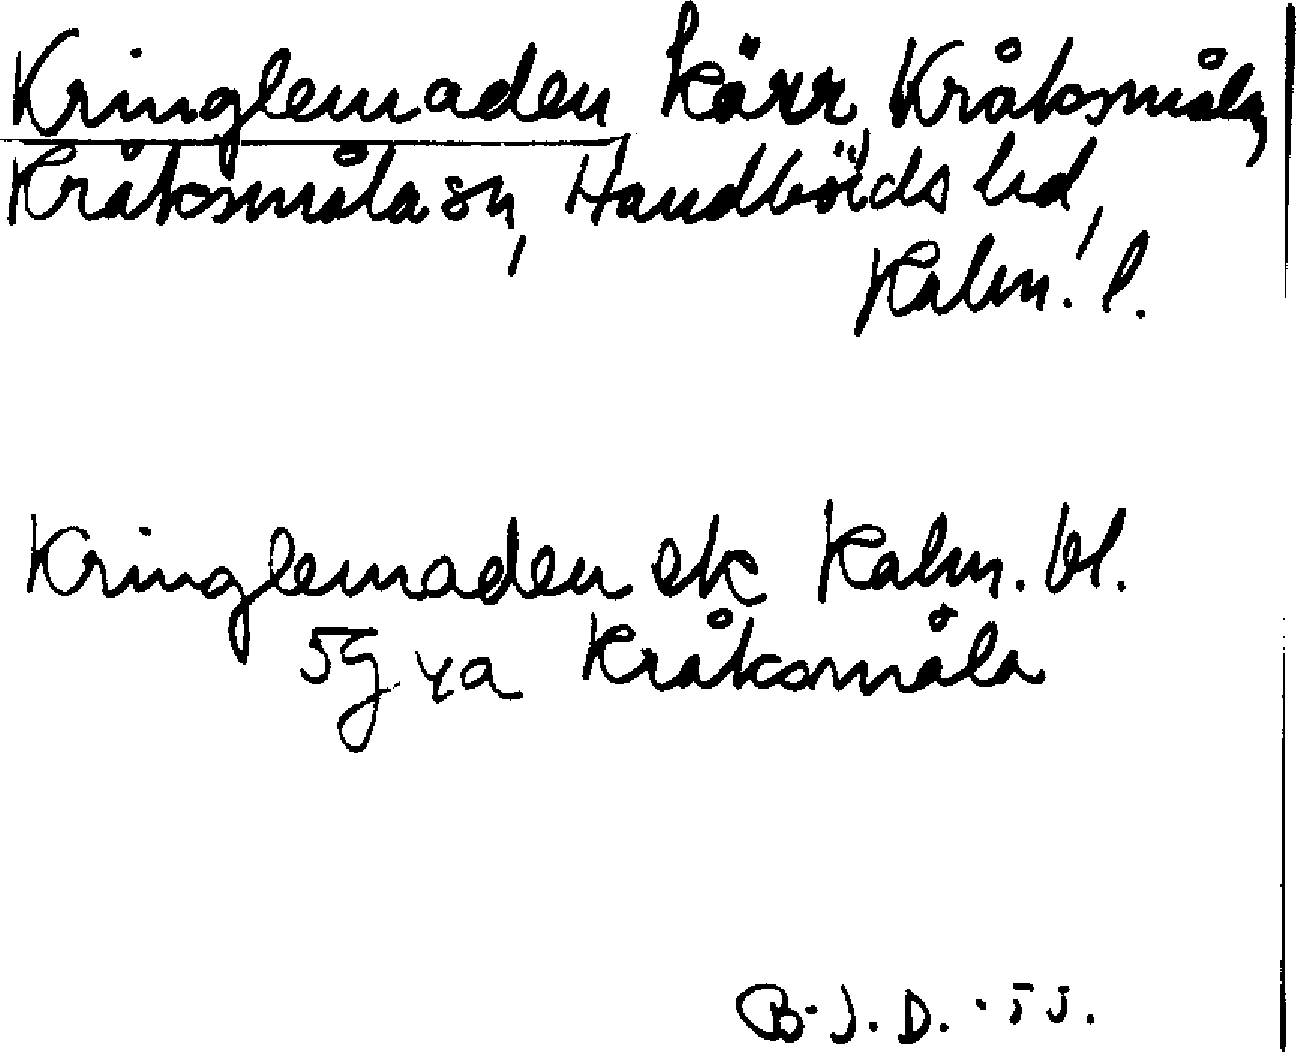 Kringlemaden, kärr, Kråksmåla,
Kråksmåla sn, Handbörds hd,
Kalm. l.
Kringlemaden ek Kalm. bl.
5G 4a Kråksmåla
B. J. D. · 55.